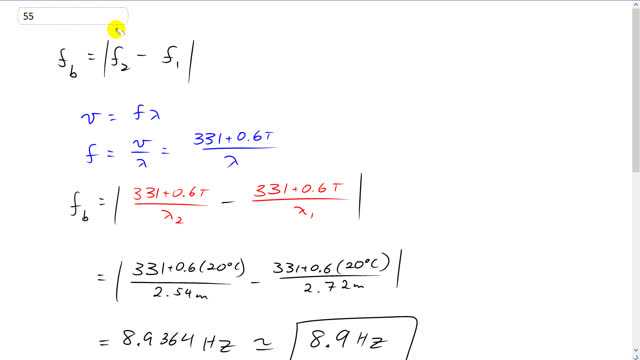 55
f_b = |f_2 - f_1|
v = fλ
f = v/λ = (331+0.6T)/λ
f_b = |(331+0.6T)/λ_2 - (331+0.6T)/λ_1|
= |(331+0.6(20°C))/2.54m - (331+0.6(20°C))/2.72m|
= 8.9364 Hz ≃ 8.9 Hz